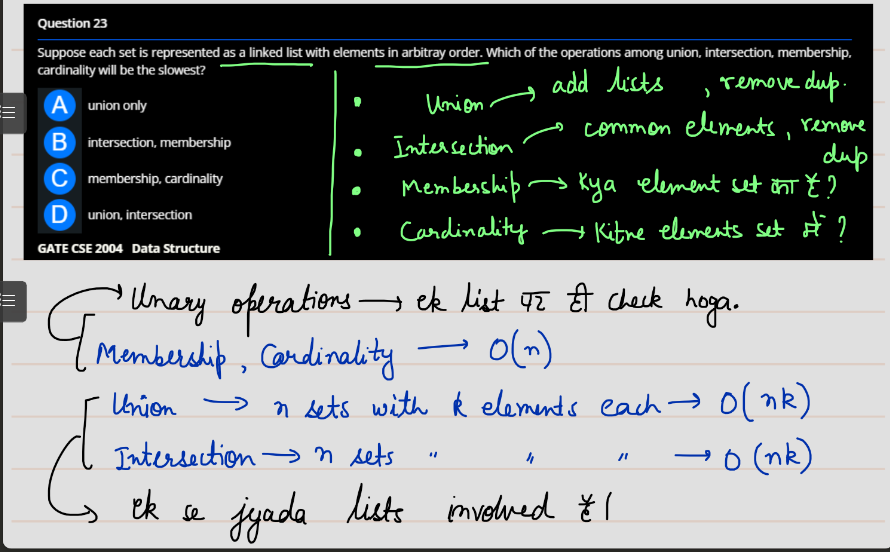 Question 23
Suppose each set is represented as a linked list with elements in arbitray order. Which of the operations among union, intersection, membership,
cardinality will be the slowest?
A union only
B intersection, membership
C membership, cardinality
D union, intersection
GATE CSE 2004 Data Structure
• Union → add lists , remove dup.
• Intersection → common elements, remove
dup
• Membership → Kya element set का है?
• Cardinality → Kitne elements set में है?
Unary operations → ek list पर ही check hoga.
Membership, Cardinality → O(n)
Union → n sets with k elements each → O(nk)
Intersection → n sets " " " → O(nk)
ek se jyada lists involved है।